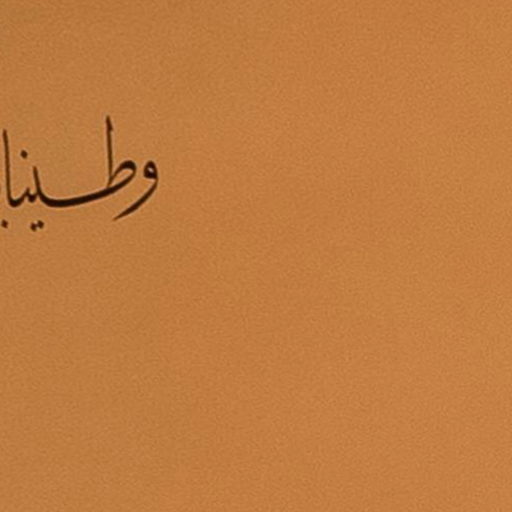 وطينا